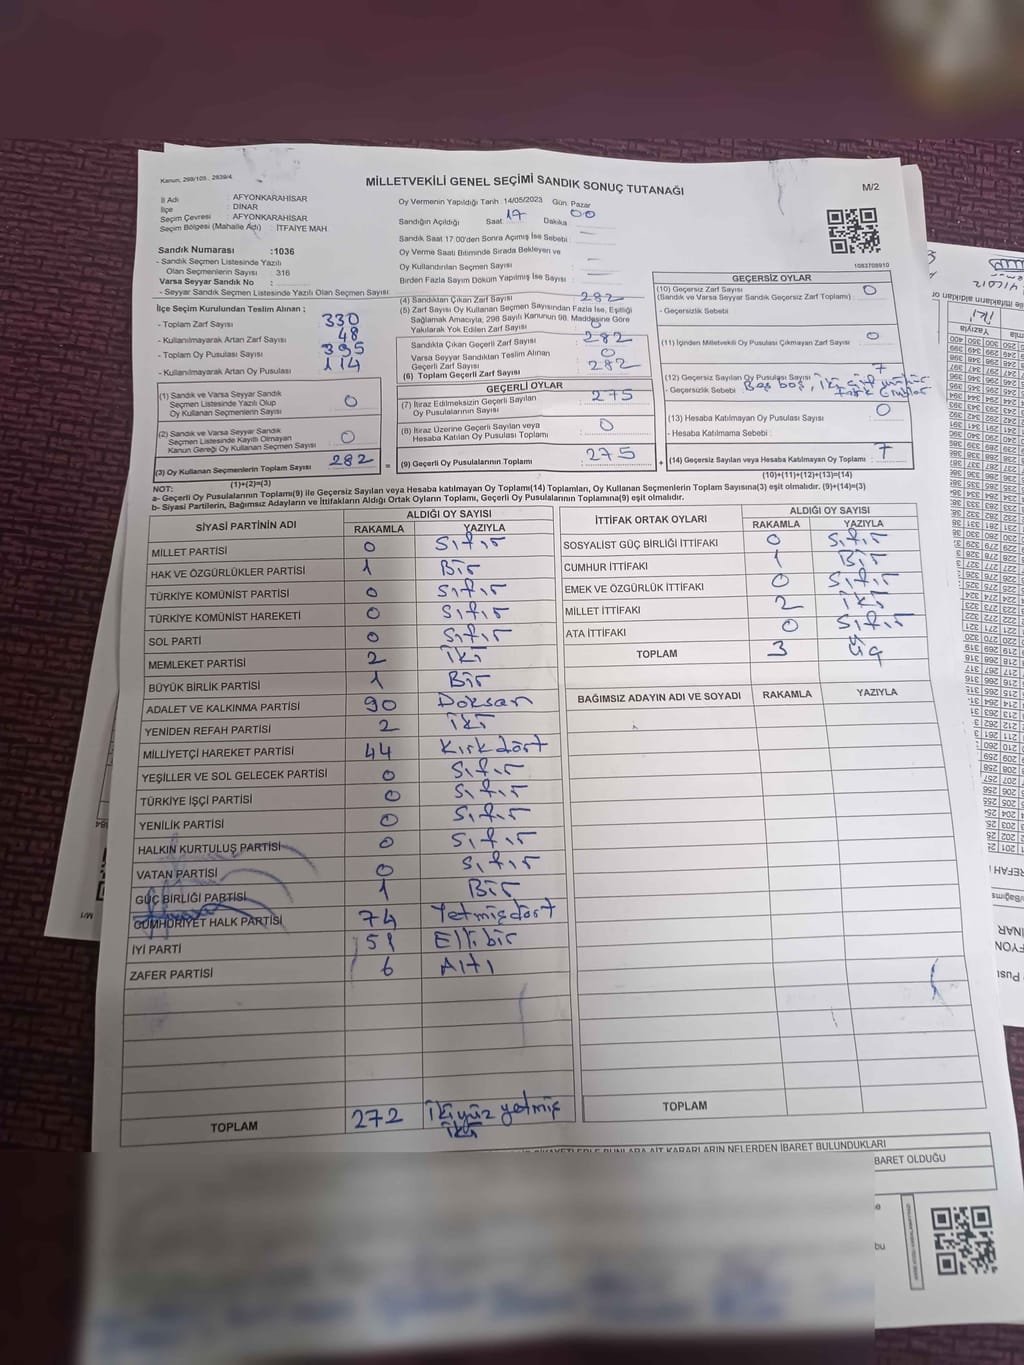 Kanun, 298/105 . 2839/4
MİLLETVEKİLİ GENEL SEÇİMİ SANDIK SONUÇ TUTANAĞI
M/2
İl Adı : AFYONKARAHİSAR
İlçe : DİNAR
Seçim Çevresi : AFYONKARAHİSAR
Seçim Bölgesi (Mahalle Adı) : İTFAİYE MAH.
Sandık Numarası :1036
- Sandık Seçmen Listesinde Yazılı
Olan Seçmenlerin Sayısı : 316
Varsa Seyyar Sandık No :
- Seyyar Sandık Seçmen Listesinde Yazılı Olan Seçmen Sayısı:
Oy Vermenin Yapıldığı Tarih :14/05/2023 Gün Pazar
Sandığın Açıldığı Saat 17 Dakika 00
Sandık Saat 17.00'den Sonra Açımış İse Sebebi :
Oy Verme Saati Bitiminde Sırada Bekleyen ve
Oy Kullandırılan Seçmen Sayısı :
Birden Fazla Sayım Döküm Yapılmış İse Sayısı :
1083708910
İlçe Seçim Kurulundan Teslim Alınan ;
- Toplam Zarf Sayısı : 330
- Kullanılmayarak Artan Zarf Sayısı : 48
- Toplam Oy Pusulası Sayısı : 395
- Kullanılmayarak Artan Oy Pusulası : 114
(1) Sandık ve Varsa Seyyar Sandık
Seçmen Listesinde Yazılı Olup
Oy Kullanan Seçmenlerin Sayısı : 0
(2) Sandık ve Varsa Seyyar Sandık
Seçmen Listesinde Kayıtlı Olmayan
Kanun Gereği Oy Kullanan Seçmen Sayısı : 0
(3) Oy Kullanan Seçmenlerin Toplam Sayısı : 282
(1)+(2)=(3)
(4) Sandıktan Çıkan Zarf Sayısı : 282
(5) Zarf Sayısı Oy Kullanan Seçmen Sayısından Fazla İse, Eşitliği
Sağlamak Amacıyla, 298 Sayılı Kanunun 98. Maddesine Göre
Yakılarak Yok Edilen Zarf Sayısı : 0
Sandıkta Çıkan Geçerli Zarf Sayısı : 282
Varsa Seyyar Sandıktan Teslim Alınan
Geçerli Zarf Sayısı : 0
(6) Toplam Geçerli Zarf Sayısı : 282
GEÇERLİ OYLAR
(7) İtiraz Edilmeksizin Geçerli Sayılan
Oy Pusulasının Sayısı : 275
(8) İtiraz Üzerine Geçerli Sayılan veya
Hesaba Katılan Oy Pusulası Toplamı : 0
= (9) Geçerli Oy Pusulalarının Toplamı : 275
GEÇERSİZ OYLAR
(10) Geçersiz Zarf Sayısı
(Sandık ve Varsa Seyyar Sandık Geçersiz Zarf Toplamı) : 0
- Geçersizlik Sebebi :
(11) İçinden Milletvekili Oy Pusulası Çıkmayan Zarf Sayısı : 0
(12) Geçersiz Sayılan Oy Pusulası Sayısı : 7
- Geçersizlik Sebebi :
(13) Hesaba Katılmayan Oy Pusulası Sayısı : 0
- Hesaba Katılmama Sebebi :
+ (14) Geçersiz Sayılan veya Hesaba Katılmayan Oy Toplamı : 7
(10)+(11)+(12)+(13)=(14)
NOT:
a- Geçerli Oy Pusulalarının Toplamı(9) ile Geçersiz Sayılan veya Hesaba katılmayan Oy Toplamı(14) Toplamları, Oy Kullanan Seçmenlerin Toplam Sayısına(3) eşit olmalıdır. (9)+(14)=(3)
b- Siyasi Partilerin, Bağımsız Adayların ve İttifakların Aldığı Ortak Oyların Toplamı, Geçerli Oy Pusulalarının Toplamına(9) eşit olmalıdır.
SİYASİ PARTİNİN ADI ALDIĞI OY SAYISI
RAKAMLA YAZIYLA
MİLLET PARTİSİ 0 Sıfır
HAK VE ÖZGÜRLÜKLER PARTİSİ 1 Bir
TÜRKİYE KOMÜNİST PARTİSİ 0 Sıfır
TÜRKİYE KOMÜNİST HAREKETİ 0 Sıfır
SOL PARTİ 0 Sıfır
MEMLEKET PARTİSİ 2 iki
BÜYÜK BİRLİK PARTİSİ 1 Bir
ADALET VE KALKINMA PARTİSİ 90 Doksan
YENİDEN REFAH PARTİSİ 2 iki
MİLLİYETÇİ HAREKET PARTİSİ 44 Kırkdört
YEŞİLLER VE SOL GELECEK PARTİSİ 0 Sıfır
TÜRKİYE İŞÇİ PARTİSİ 0 Sıfır
YENİLİK PARTİSİ 0 Sıfır
HALKIN KURTULUŞ PARTİSİ 0 Sıfır
VATAN PARTİSİ 0 Sıfır
GÜÇ BİRLİĞİ PARTİSİ 1 Bir
CUMHURİYET HALK PARTİSİ 74 Yetmişdört
İYİ PARTİ 51 Ellibir
ZAFER PARTİSİ 6 Altı
TOPLAM 272 ikiyüz yetmiş
iki
İTTİFAK ORTAK OYLARI ALDIĞI OY SAYISI
RAKAMLA YAZIYLA
SOSYALİST GÜÇ BİRLİĞİ İTTİFAKI 0 Sıfır
CUMHUR İTTİFAKI 1 Bir
EMEK VE ÖZGÜRLÜK İTTİFAKI 0 Sıfır
MİLLET İTTİFAKI 2 iki
ATA İTTİFAKI 0 Sıfır
TOPLAM 3 üç
BAĞIMSIZ ADAYIN ADI VE SOYADI RAKAMLA YAZIYLA
TOPLAM
KARARLARIN NELERDEN İBARET BULUNDUKLARI
BARET OLDUĞU